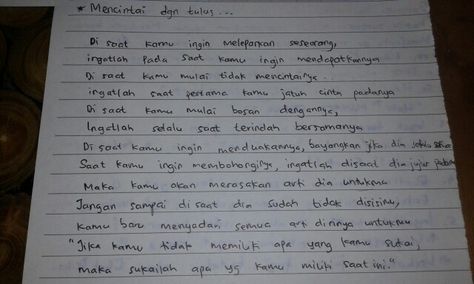 * Mencintai dgn tulus ...
Di saat kamu ingin melepaskan seseorang,
ingatlah pada saat kamu ingin mendapatkannya
Di saat kamu mulai tidak mencintainya..
ingatlah saat pertama kamu jatuh cinta padanya
Di saat kamu mulai bosan dengannya,
Ingatlah selalu saat terindah bersamanya
Di saat kamu ingin menduakannya, bayangkan jika dia selalu setia
Saat kamu ingin membohonginya, ingatlah disaat dia jujur padamu
Maka kamu akan merasakan arti dia untukmu
Jangan sampai di saat dia sudah tidak disisimu,
kamu baru menyadari semua arti dirinya untukmu
"Jika kamu tidak memiliki apa yang kamu sukai,
maka sukailah apa yg kamu miliki saat ini."